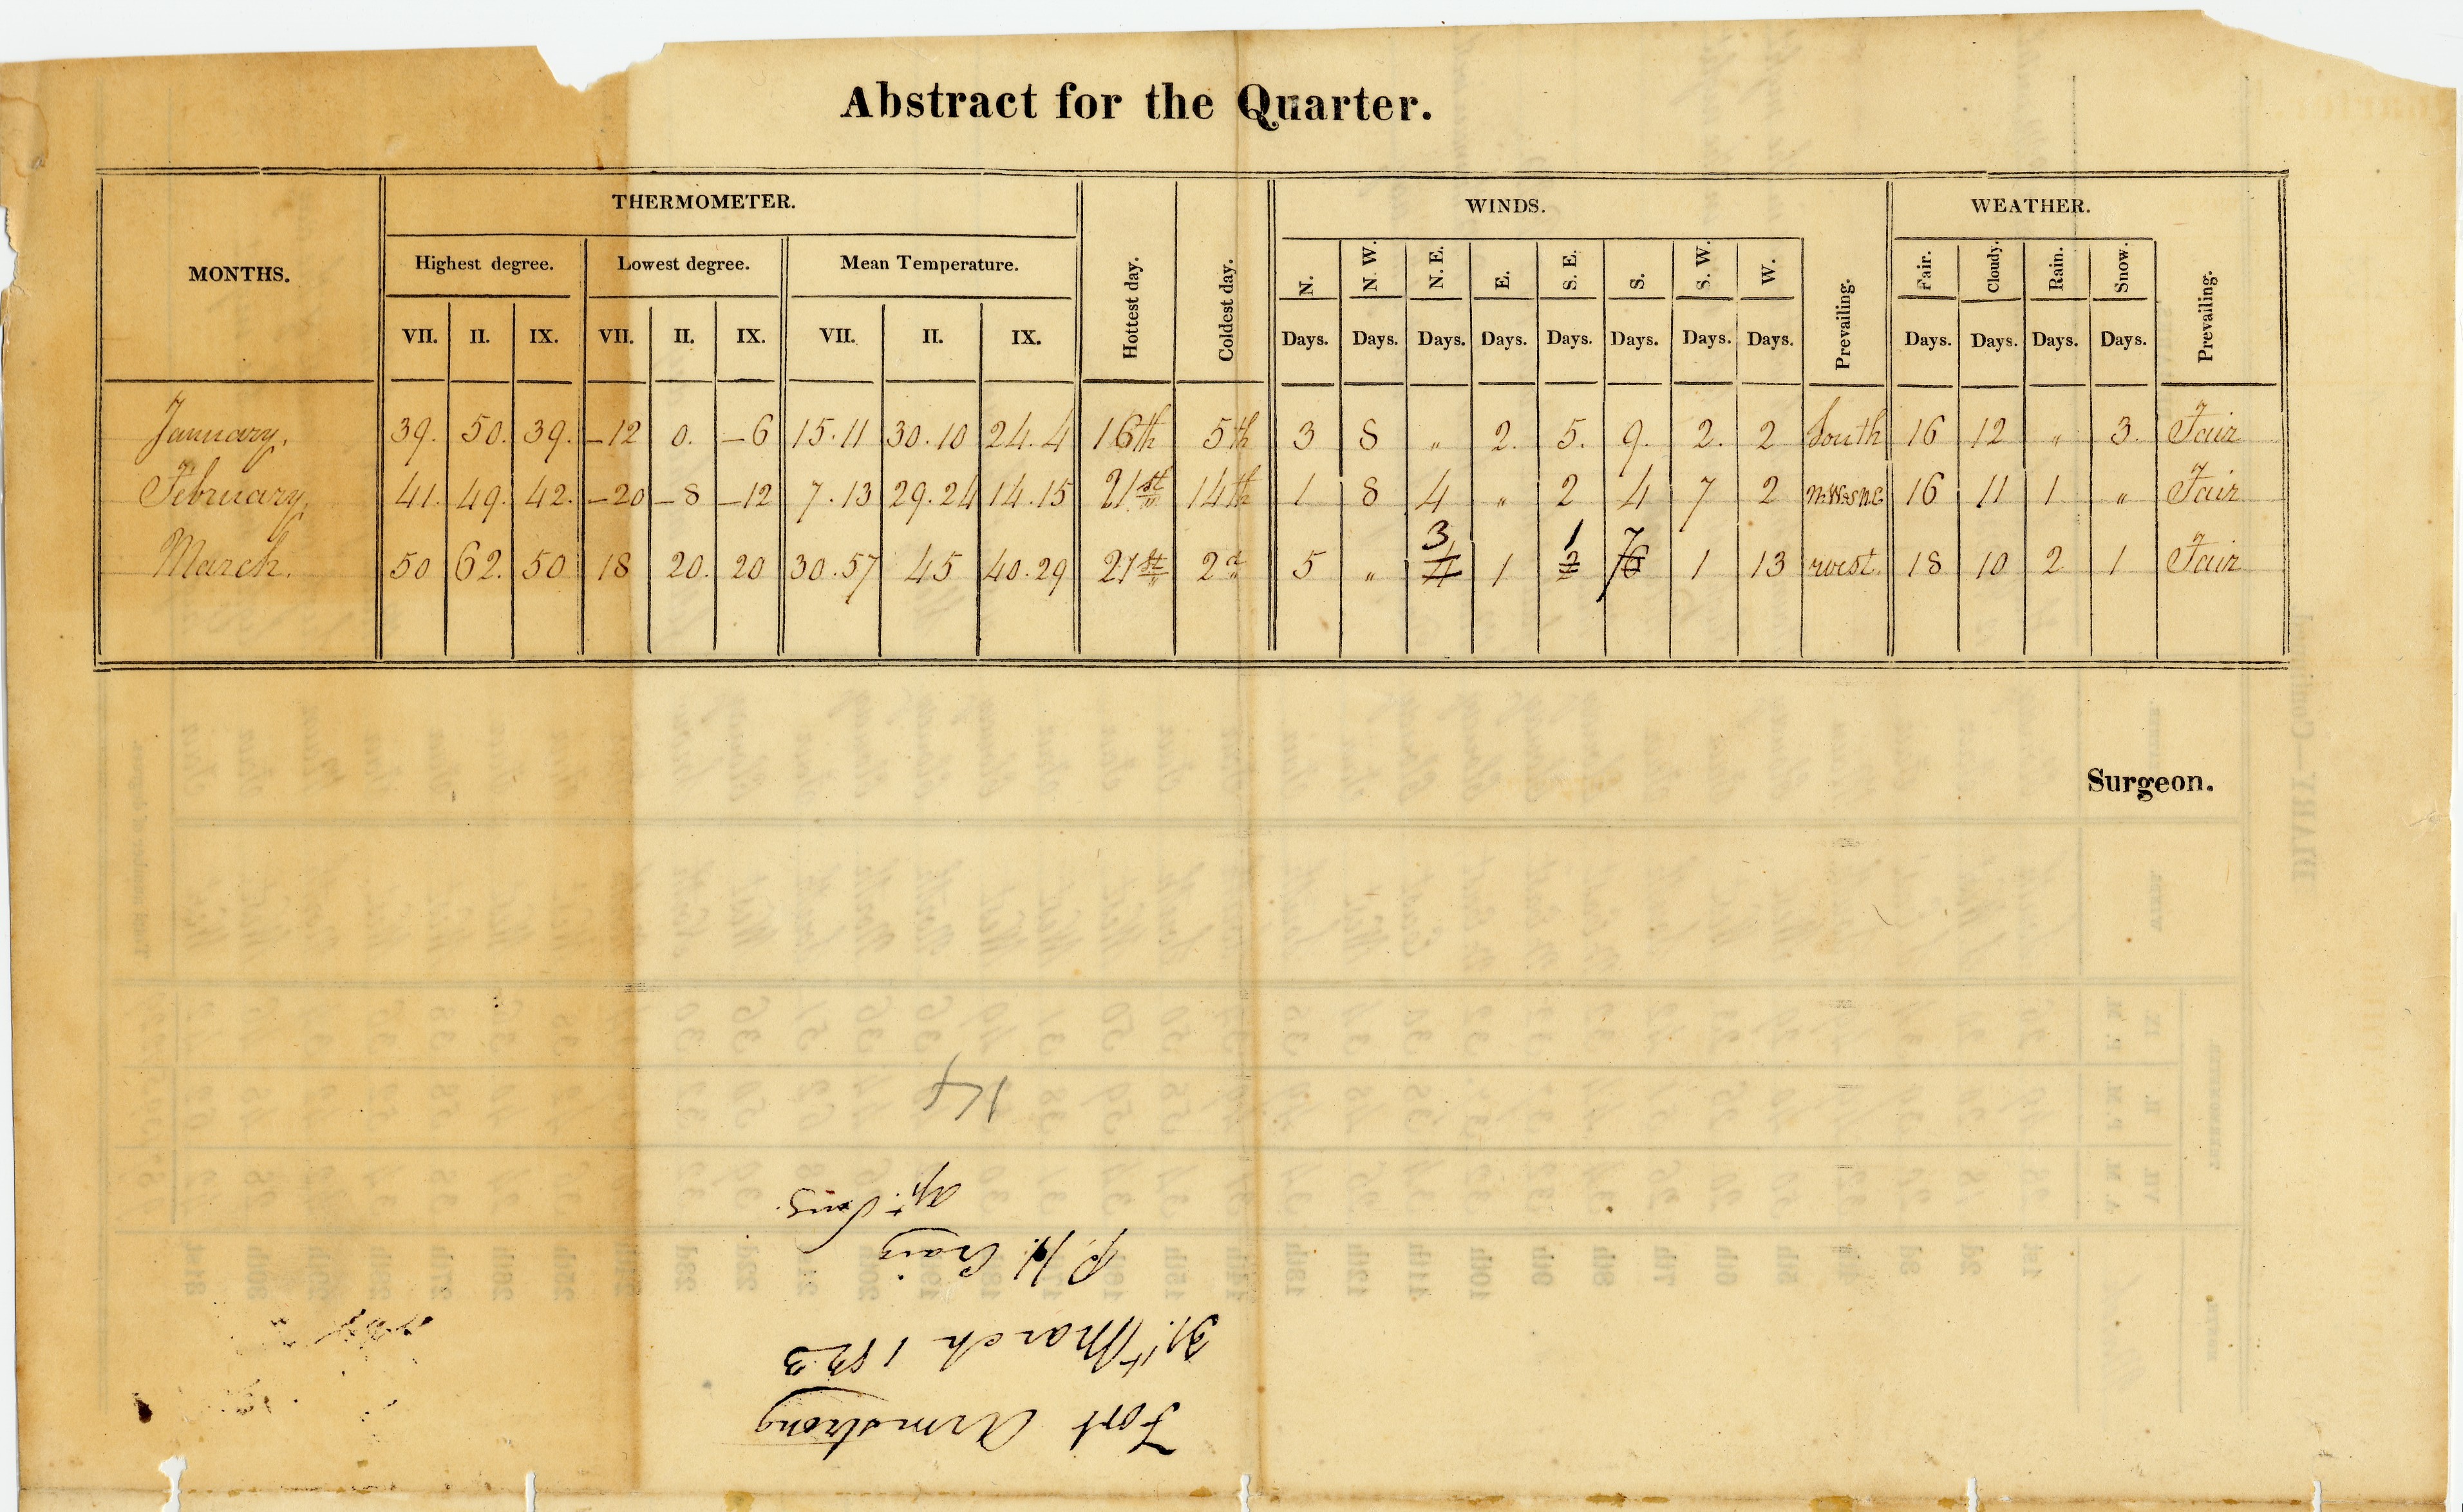 Abstract for the Quarter.
MONTHS. THERMOMETER. Hottest day. Coldest day. WINDS. WEATHER.
Highest degree. Lowest degree. Mean Temperature. N. N. W. N. E. E. S. E. S. S. W. W. Prevailing. Fair. Cloudy. Rain. Snow. Prevailing.
VII. II. IX. VII. II. IX. VII. II. IX. Days. Days. Days. Days. Days. Days. Days. Days. Days. Days. Days. Days.
January. 39. 50. 39. -12 0. -6 15.11 30.10 24.4 16th 5th 3 8 " 2. 5. 9. 2. 2 South 16 12 " 3. Fair
February. 41. 49. 42. -20 -8 -12 7.13 29.24 14.15 21st 14th 1 8 4 " 2 4 7 2 16 11 1 " Fair
3 1 7
March. 50 62. 50 18 20. 20 30.57 45 40.29 21st 2d 5 " 4 1 2 6 1 13 west. 18 10 2 1 Fair
Surgeon.
Fort Armstrong
31st March 1823
P. H. Craig
Apt. Surg.
14